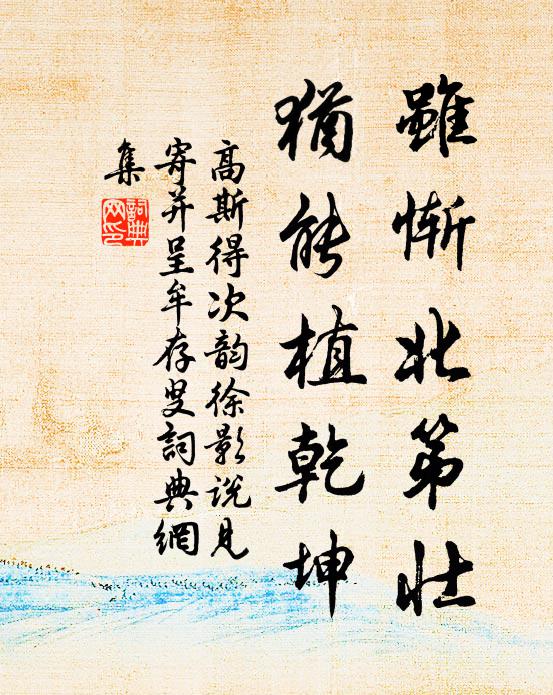 雖慚北第壯
猶能植乾坤
高斯得次韵徐影說見
寄并呈牟存叟詞典網
集
詞典网印